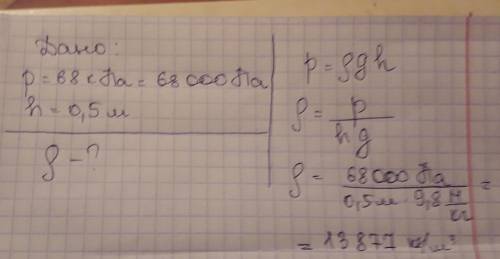 Дано:
p = 68 кПа = 68 000 Па
h = 0,5 м
ρ - ?
p = ρgh
ρ = p / hg
ρ = 68 000 Па / 0,5 м 9,8 Н/кг =
= 13877 кг/м³